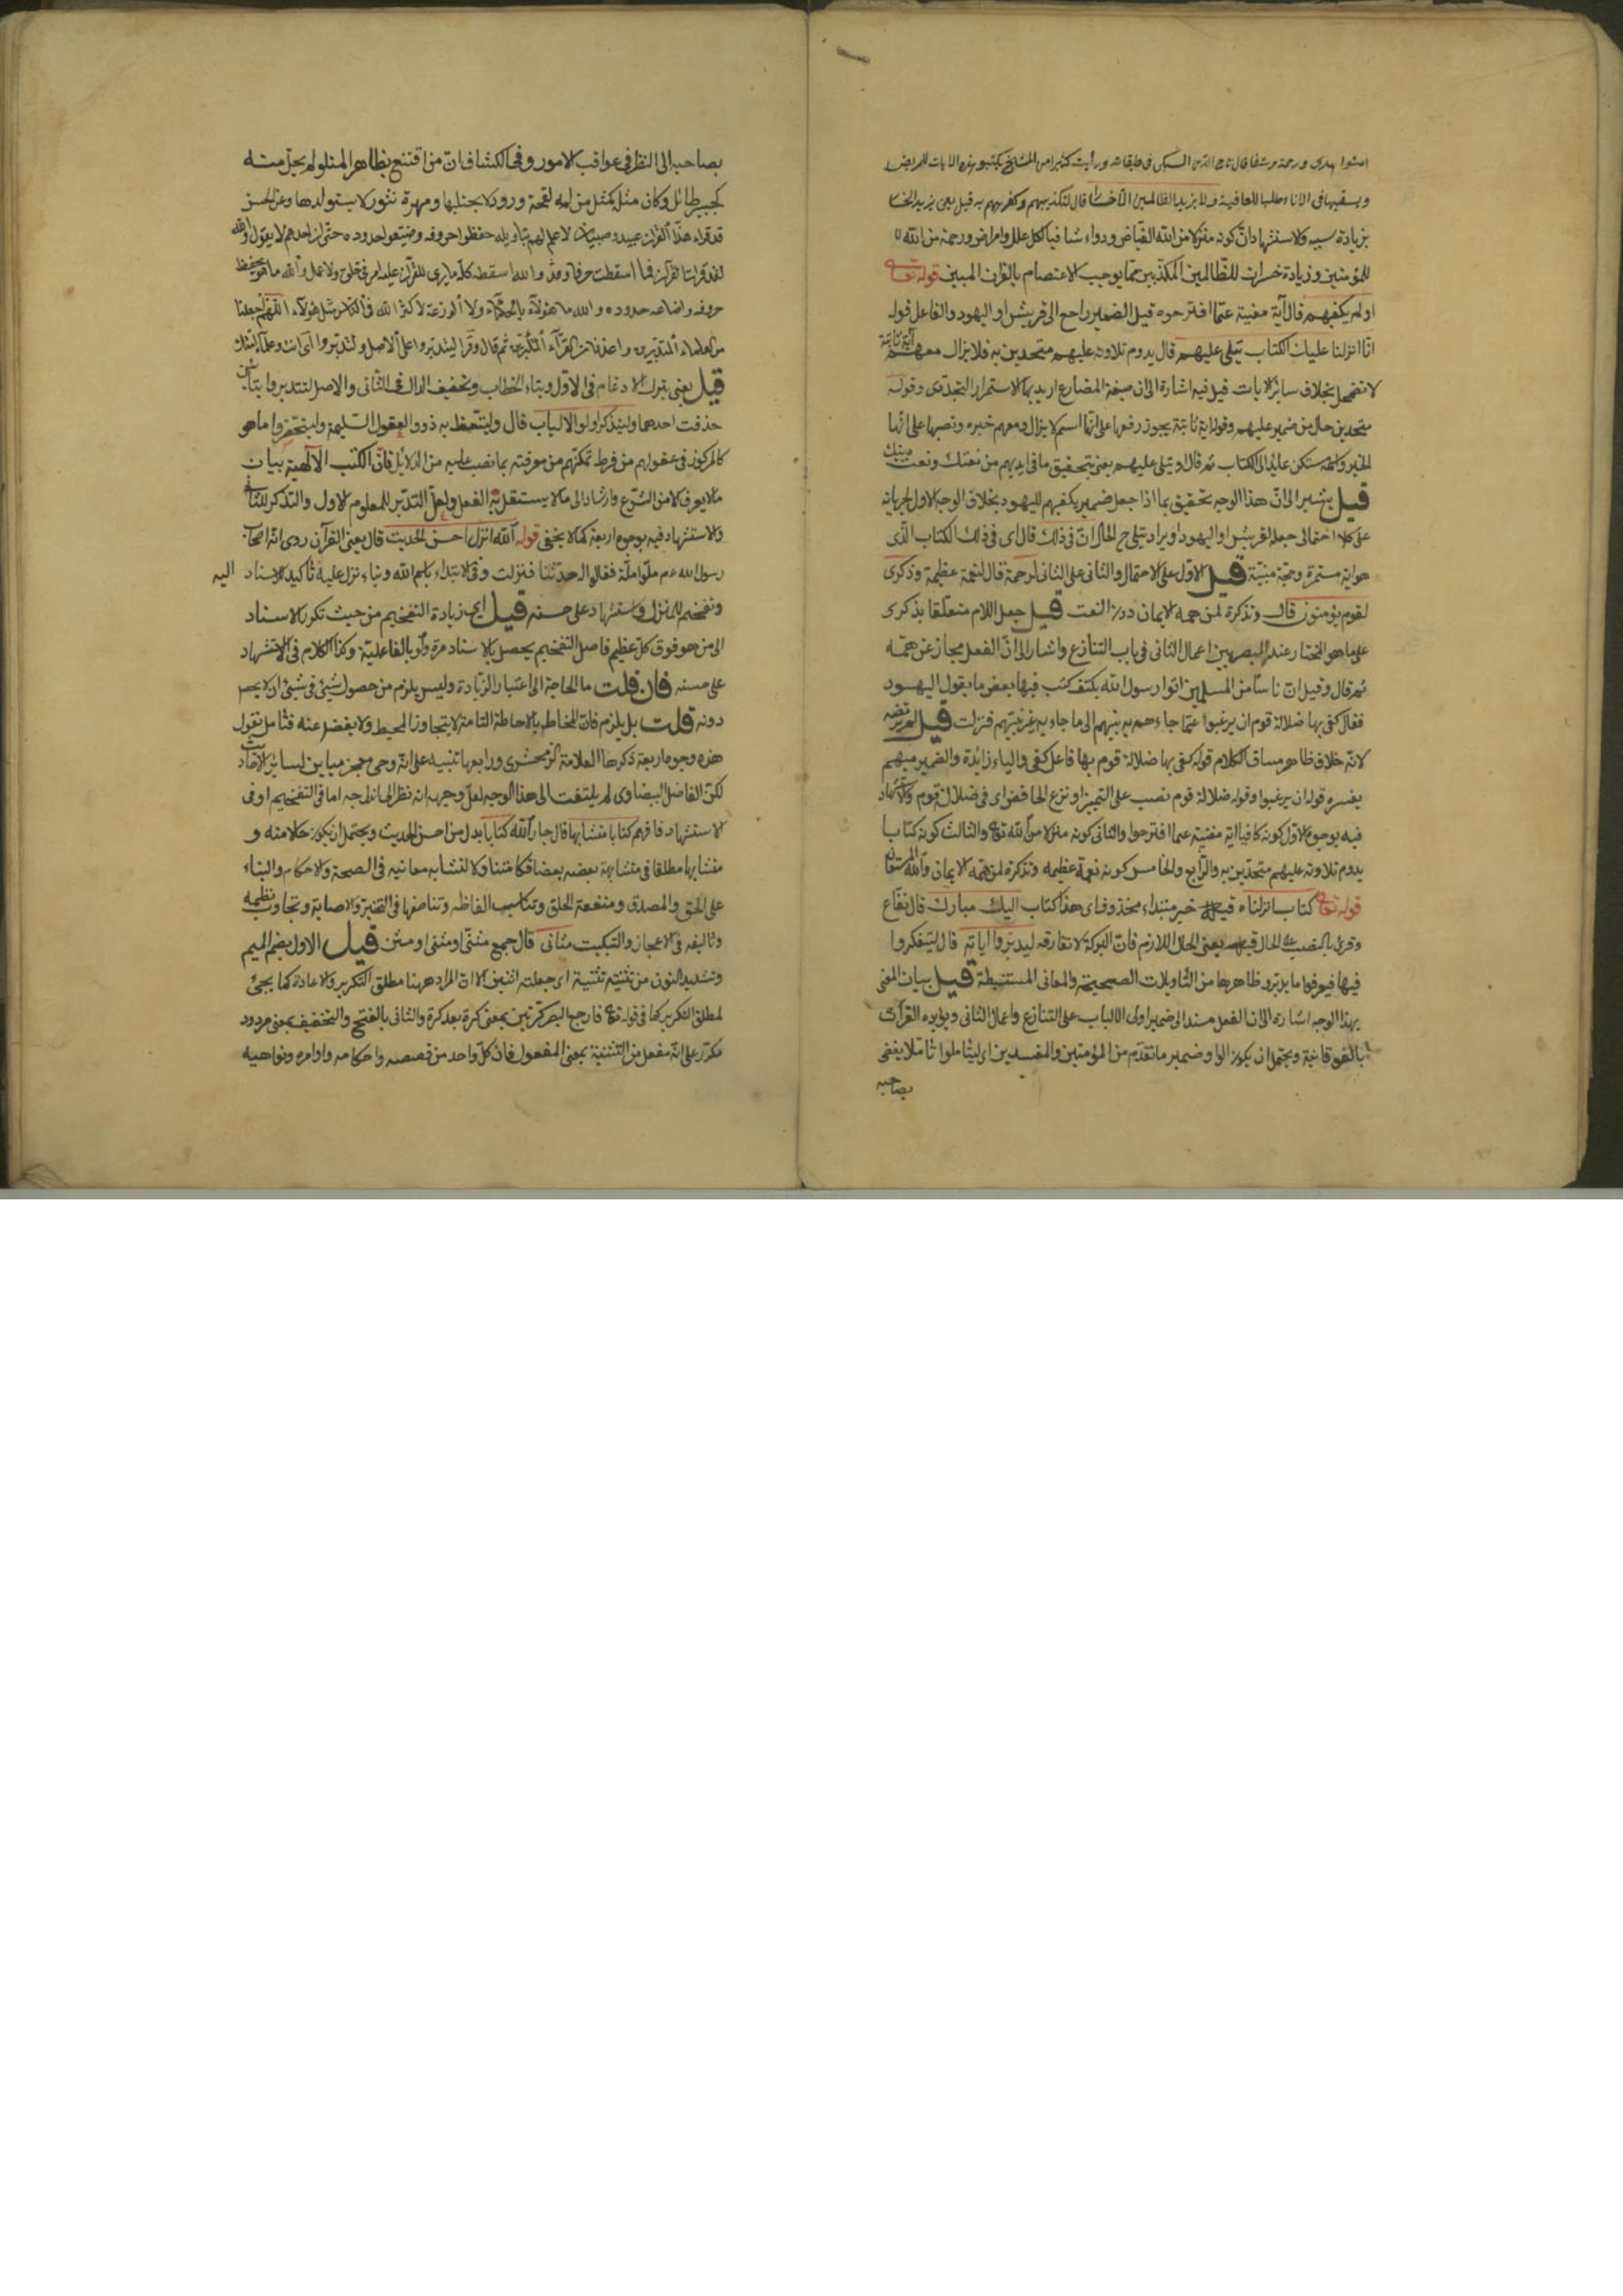 امنوا هدى ورحمة وشفا قال تاج الدين السبكى فى طبقاته ورأيت كثيرا من المشايخ يكتبون هذه الايات للمريض
ويسقيها فى الاناء طلبا للعافية ولا يزيد الظالمين الا خسارا قال لتكذيبهم وكفرهم به قيل يعنى يزيد الخسار
بزيادة سببه والاستشهاد انّ كونه منزلا من الله الفياض ودواء شافيا لكل علل وامراض ورحمة من الله
للمؤمنين وزيادة خسران للظالمين المكذبين مما يوجب الاعتصام بالقران المبين قوله تعالى
اولم يكفهم قال آية مغنية عمّا اقترحوه قيل الضمير راجع الى قريش او اليهود والفاعل قوله
انّا انزلنا عليك الكتاب يتلى عليهم قال يدوم تلاوته عليهم متحدين به فلا يزال معهم آية ثابتة
لا تضمحل بخلاف سائر الايات قيل فيه اشارة الى ان صيغة المضارع اريد بها الاستمرار التجددى وقوله
متحدين حال من ضمير عليهم وقوله اية ثابتة يجوز رفعها على انها اسم لا يزال ومعهم خبره ونصبها على انها
الخبر واسمه مستكن عائد الى الكتاب ثم قال او يتلى عليهم يعنى بتحقيق ما فى ايديهم من نعتك ونعت دينك
قيل يشير الى ان هذا الوجه تحقيق بما اذا جعل ضمير يكفهم لليهود بخلاف الوجه الاول لجريانه
على كلا احتمالى جعله لقريش او اليهود او يراد يتلى ح الحال انّ فى ذلك قال اى فى ذلك الكتاب الذى
هو اية مستمرة وحجة مبينة قيل الاول على الاحتمال والثانى على الثانى لرحمة قال لنعمة عظيمة وذكرى
لقوم يؤمنون قال وتذكرة لمن همه الايمان دون التعنت قيل جعل اللام متعلقا بذكرى
على ما هو المختار عند البصريين اعمال الثانى فى باب التنازع واشار الى انّ الفعل مجاز عن همه
ثم قال وقيل ان ناسا من المسلمين اتوا رسول الله بكتف كتب فيها بعض ما يقول اليهود
فقال كفى بها ضلالة قوم ان يرغبوا عمّا جاءهم به نبيهم الى ما جاء به غير نبيهم فنزلت قيل لم يرتضه
لانه خلاف ظاهر مساق الكلام قوله كفى بها ضلالة قوم بها فاعل كفى والباء زائدة والضمير مبهم
يفسره قوله ان يرغبوا وقوله ضلالة قوم نصب على التميز او نزع الخافض اى فى ضلالة قوم والاستشهاد
فيه بوجوه الاول كونه كافيا اية مغنية عما اقترحوا والثانى كونه منزلا من الله تع والثالث كونه كتابا
يدوم تلاوته عليهم متحدين به والرابع والخامس كونه نعمة عظيمه وتذكرة لمن همه الايمان والله المستعان
قوله تعالى كتاب انزلناه قيل خبر مبتداء محذوف اى هذا كتاب اليك مبارك قال نفاع
وقرئ بالنصب على الحال قيل يعنى الحال اللازم فان البركة لا تفارقه ليدبروا اياته قال ليتفكروا
فيها فيعرفوا ما يدبر ظاهرها من التأويلات الصحيحة والمعانى المستنبطة قيل بيان المعنى
بهذا الوجه اشارة الى ان الفعل مسند الى ضمير اولى الالباب على التنازع واعمال الثانى ويؤيده القرآت
بالفوقانية ويحتمل ان يكون الواو ضمير ما تقدم من المؤمنين والمفسدين اى ليتأملوا تأملا يفضى
بصاحبه
بصاحبه الى النظر فى عواقب الامور وفى الكشاف انّ من اقتنع بظاهر المتلو لم يحل منه
كبير طائل وكان مثله كمثل من له لقحة درور لا يحتلبها ومهرة نثور لا يستولدها وعن الحسن
قد قراء هذا القرآن عبيد وصبيان لا علم لهم بتأويله حفظوا حروفه وضيعوا حدوده حتى ان احدهم ليقول والله
لقد قرات القرآن فما اسقطت حرفا وقد والله اسقطه كله ما يرى للقرآن عليه اثر فى خلق ولا عمل والله ما هو بحفظ
حروفه واضاعه حدوده والله ما هؤلاء بالحكماء ولا الوزعة لا كثر الله فى الناس مثل هؤلاء اللهم اجعلنا
من العلماء المتدبرين واعذنا من القرآء المتكبرين ثم قال وقرا ليتدبروا على الاصل ولتدبروا اى انت وعلماء امتك
قيل يعنى بترك الادغام فى الاول وبتاء الخطاب وتخفيف الدال فى الثانى والاصل لتتدبروا بتائين
حذفت احدهما وليتذكر اولوا الالباب قال وليتعظ به ذووا العقول السليمة وليستحضروا ما هو
كالمركوز فى عقولهم من فرط تمكنهم من معرفته بما نصب عليه من الدلايل فان الكتب الالهية بيان
ما لا يعرف الا من الشرع وارشاد الى ما لا يستقل به العقل ولعل التدبر للمعلوم الاول والتذكر للثانى
والاستشهاد فيه بوجوه اربعة كما لا يخفى قوله الله انزل احسن الحديث قال يعنى القرآن روى ان اصحاب
رسول الله عم ملوا ملة فقالوا له حدثنا فنزلت وفى الابتداء باسم الله وبناء نزل عليه تأكيد للاسناد اليه
وتفخيم للمنزل واستشهاد على حسنه قيل اى زيادة التفخيم من حيث تكرر الاسناد
الى من هو فوق كل عظيم فاصل التفخيم يحصل بالاسناد مرة ولو بالفاعلية وكذا الكلام فى الاستشهاد
على حسنه فان قلت ما الحاجة الى اعتبار الزيادة وليس يلزم من حصول شيئ فى شيئ ان لا يحصل
دونه قلت بل يلزم فان المخاطب بالاحاطة التامة لا يتجاوز المحيط ولا يفضل عنه فتأمل نقول
هذه وجوه اربعة ذكرها العلامة الزمخشرى ورابعها تنبيه على انه وحى معجز مباين لسائر الاحاديث
لكن الفاضل البيضاوى لم يلتفت الى هذا الوجه لعل وجهه انه نظر الى اندراجه اما فى التفخيم او فى
الاستشهاد فافهم كتابا متشابها قال جار الله كتابا بدل من احسن الحديث ويحتمل ان يكون حالا منه و
متشابها مطلقا فى مشابهة بعضه بعضا فكان متناولا لتشابه معانيه فى الصحة والاحكام والبناء
على الحق والصدق ومنفعة الخلق وتناسب الفاظه وتناصفها فى التخير والاصابة وتجاوب نظمه
وتأليفه فى الاعجاز والتبكيت مثانى قال جمع مثنّى او مثنى او مثن قيل الاول بضم الميم
وتشديد النون من تثنيته تثنية اى جعلته اثنين الا ان المراد ههنا مطلق التكرير والاعادة كما يجئ
لمطلق التكرير كما فى قوله تع فارجع البصر كرتين بمعنى كرة بعد كرة والثانى بالفتح والتخفيف بمعنى مردود
مكرر على انه مفعل من التثنية بمعنى المفعول فان كل واحد من قصصه واحكامه واوامره ونواهيه